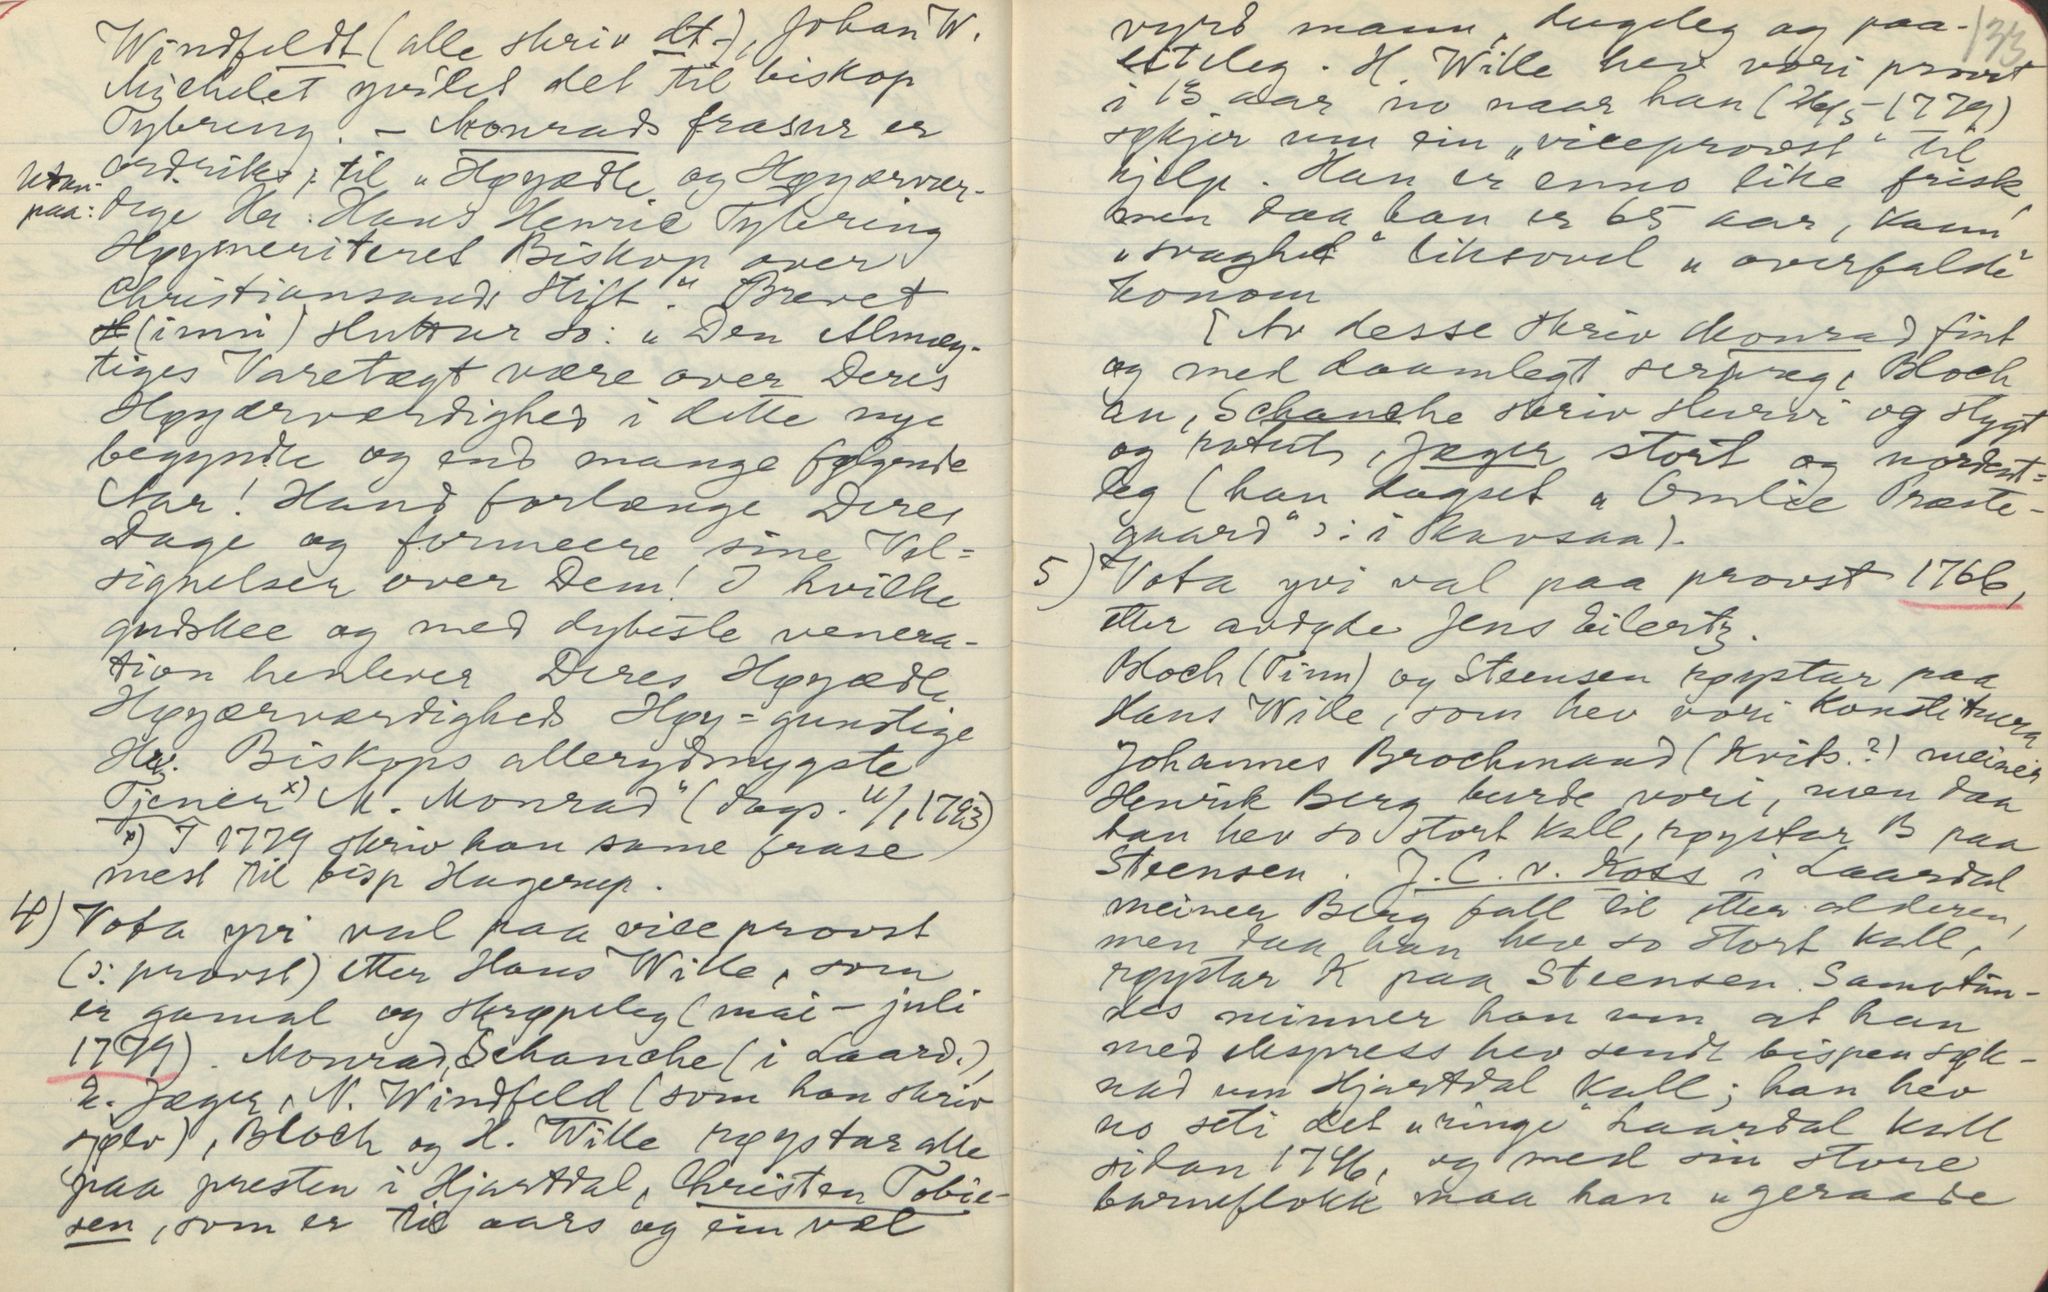 Windfeldt (alle skriv dt-), Johan W.
Michelet yvilet det til biskop
Tybring. – Monrads frasur er
ordrike; til „Høyædle og Høyærvær-
Utan-
paa:
dige Hr. Hans Henric Tybring
Høymeriteret Biskop over
Christiansands Stift". Brevet
(inni) sluttar so: „Den Almæg-
tiges Varetægt være over Deres
Høyærværdighed i dette nye
begyndte og end mange følgende
Aar! Hand forlænge Deres
Dage og formeere sine Vel=
signelser over Dem! I hvilke
gudskee og med dybeste venera-
tion henlever Deres Høyædle
Høyærværdigheds Høy=gunstige
Hr. Biskops allerydmygste
Tjener x) M. Monrad" (dags. 11/1 1793)
x) I 1779 skriv han same frase
mest til bisp Hagerup.
4) Vota yvi val paa viceprovst
(ɔ: provst) etter Hans Wille, som
er gamal og skrøpeleg (mai – juli
1779). Monrad, Schanche (i Laard.),
Jæger, N. Windfeld (som han skriv
sjølv), Bloch og H. Wille røystar alle
paa presten i Hjartdal, Christen Tobie-
sen, som er til aars og ein vel
133
vyrd mann, dugeleg og paa-
liteleg. H. Wille hev vori provst
i 13 aar no naar han (26/5 – 1779)
søkjer um ein „viceprovst" til
hjelp. Han er enno like frisk,
men daa han er 65 aar, kann
„svaghet" liksovel „overfalde"
honom
[Av desse skriv Monrad fint
og med daamlegt serpræg, Bloch
au, Schanche skriv skurvi og stygt
og , Jæger stort og
leg (han dagset „Omlie Præste-
gaard" ɔ: i ).
5) Vota yvi val paa provst 1766,
etter avdøde Jens Eilertz.
Bloch (Tinn) og Steensen røystar paa
Hans Wille, som hev vori Konstituera
Johannes Brochmand (Kvits.?) meiner
Henrik Berg burde vori, men daa
han hev so stort kall, røystar B paa
Steensen. J. C. v. Koss i Laardal
meiner Berg fall til etter alderen,
men daa han hev so stort kall,
røystar K paa Steensen. Samstun-
des minner han um at han
med ekspress hev sendt bispen søk-
nad um Hjartdal Kall; han hev
no seti det „ringe" Laardal kall
sidan 1746, og med sin store
barneflokk maa han „geraade